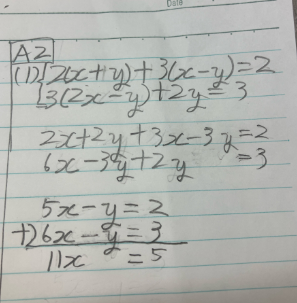 Date
A2
(1) 2(x+y)+3(x-y)=2
3(2x-y)+2y=3
2x+2y+3x-3y=2
6x-3y+2y =3
5x-y=2
+) 6x-y=3
11x =5